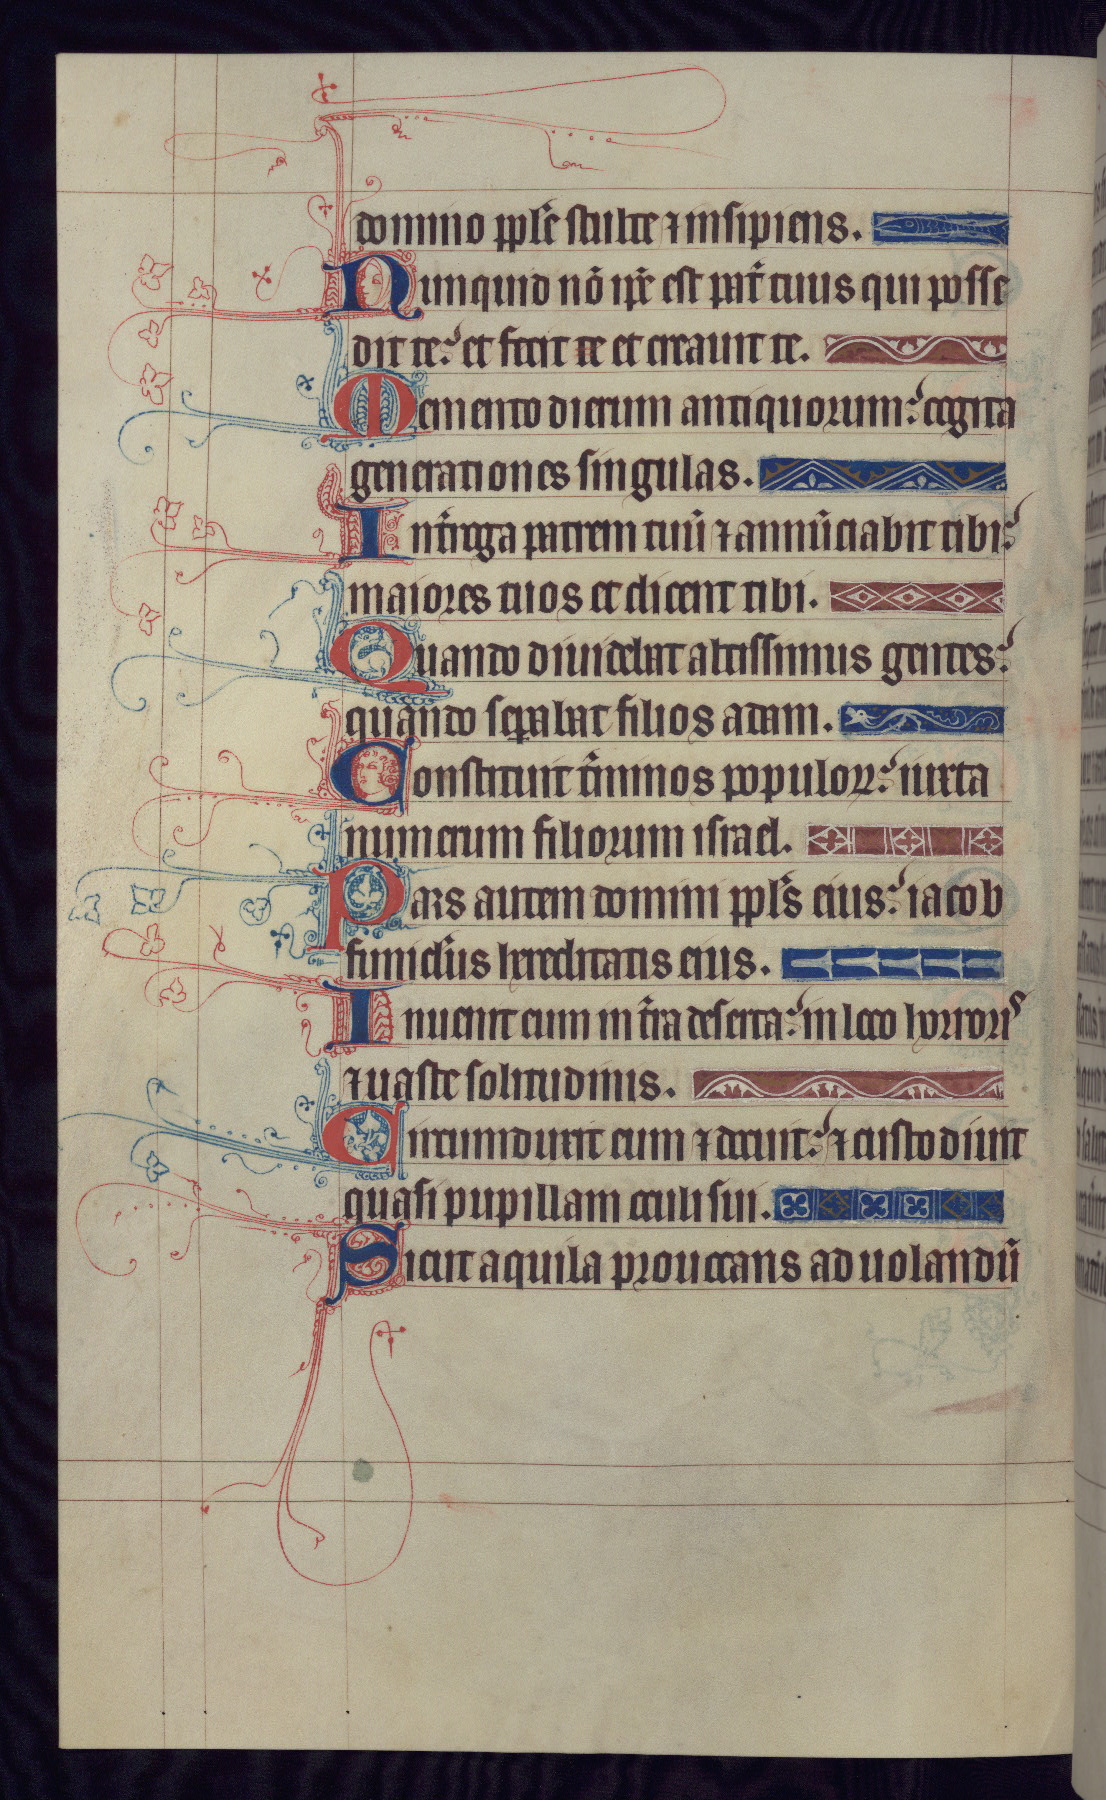 domino pp̄le stulte ⁊ insipiens.
Nunquid nō ip̄e est pat̄ tuus qui posse
dit te: et fecit te et creauit te.
Memento dierum antiquorum: cogita
generationes singulas.
Int̄roga patrem tuū ⁊ annūciabit tibi:
maiores tuos et dicent tibi.
Quando diuidebat altissimus gentes:
quando sep̱abat filios adam.
Constituit t̄minos populoꝝ: iuxta
numerum filiorum israel.
Pars autem domini pp̄ls eius: iacob
funicul̄us hereditatis eius.
Inuenit eum in t̄ra deserta: in loco horroris
⁊ uaste solitudinis.
Circumduxit eum ⁊ docuit: ⁊ custodiuit
quasi pupillam oculi sui.
Sicut aquila prouocans ad uolandū